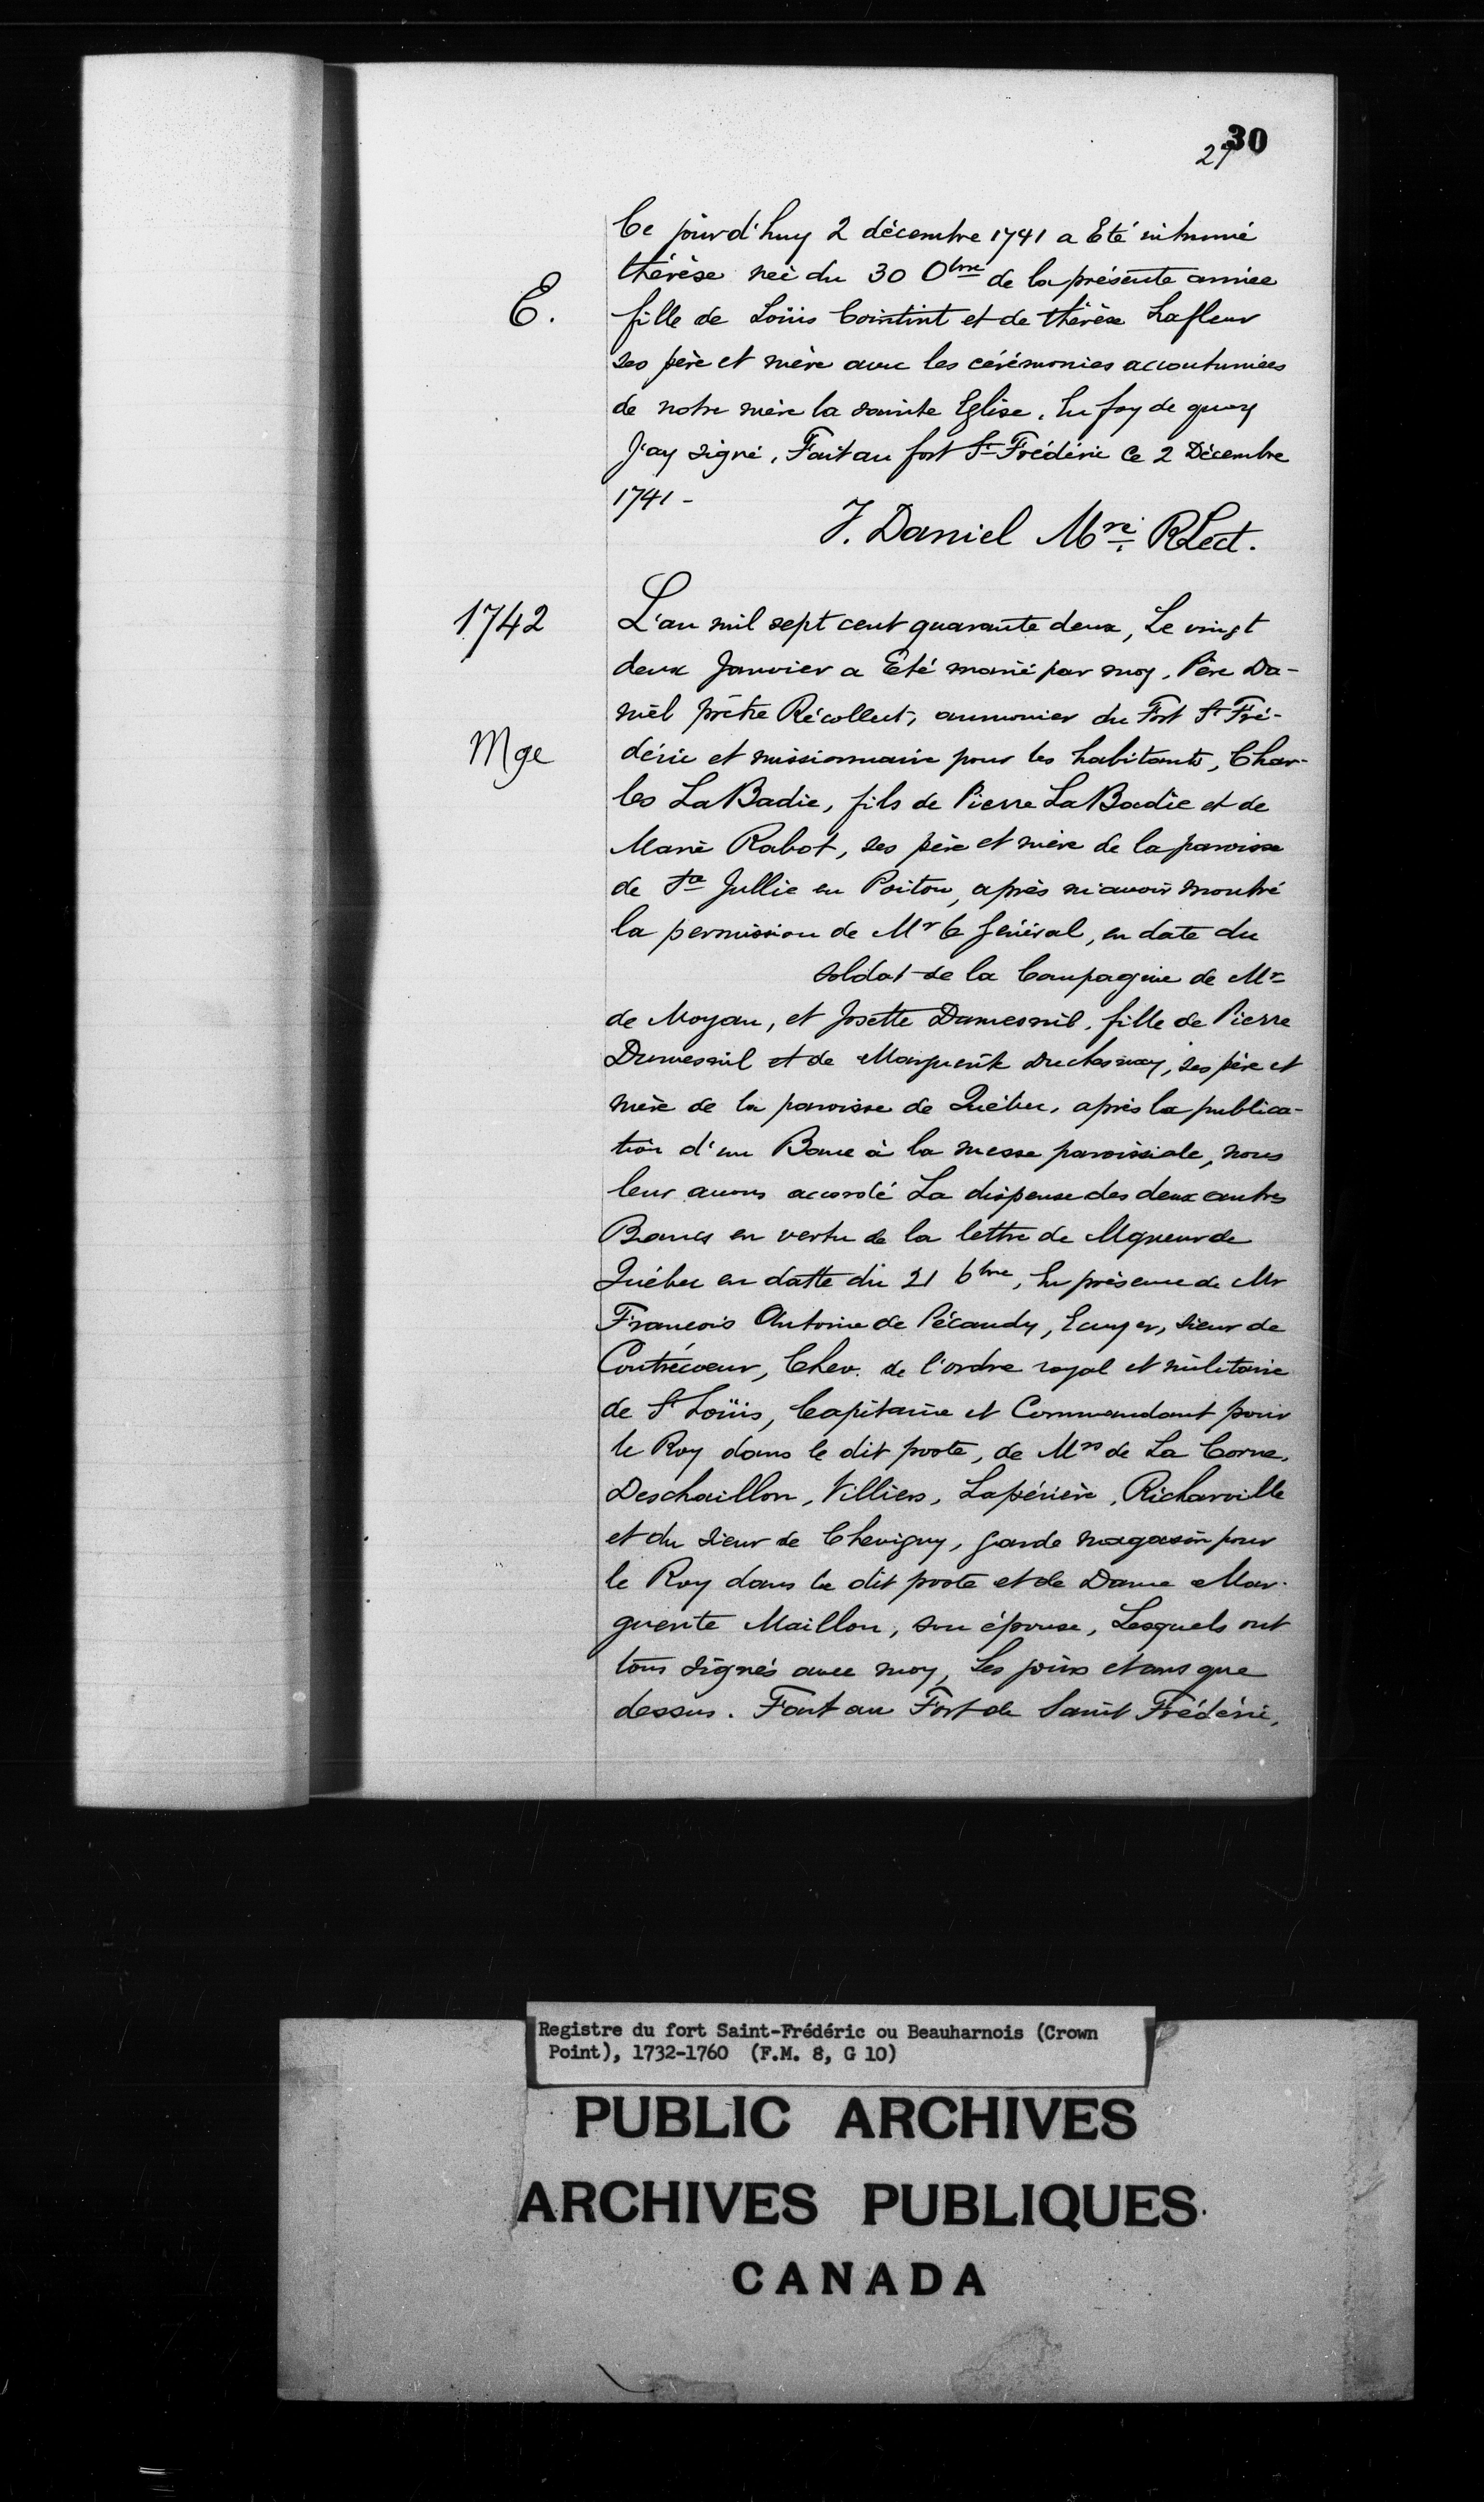 30
29
Ce jourd'huy 2 décembre 1741 a Eté inhumé
thérèse neé du 30 Obre de la présente année
E.
fille de Loüis Cointint et de thérèse Lafleur
ses père et mère avec les cérémonies accoutumées
de notre mère la sainte Eglise. En foy de quoy
J'ay signé. Fait au fort St Frédéric Ce 2 Décembre
1741 -
J. Daniel Mre. RLect.
1742
L'an mil sept cent quarante deux, Le vingt
deux Janvier a Eté marié par moy, Père Da-
niel prêtre Récollect, aumonier du Fort St Fré-
Mge
déric et missionnaire pour les habitants, Char-
les LaBadie, fils de Pierre LaBadie et de
Marie Rabot, ses père et mère de la paroisse
de Ste Jullie en Poitou, après m'avoir montré
la permission de Mr le général, en date du
soldat de la Compagnie de Mr
de Moyan, et Josette Dumesnil, fille de Pierre
Dumesnil et de Marguerite Duchesnay, ses père et
mère de la paroisse de Québec, après la publica-
tion d'un Banc à la messe paroissiale, nous
leur avons accordé La dispense des deux autres
Bancs en vertu de la lettre de Mgneur de
Québec en datte du 21 bre, En présence de Mr
François Antoine de Pécaudy, Ecuyer, sieur de
Contrecoeur, Chev. de l'ordre royal et militaire
de St Loüis, Capitaine et Commandant pour
le Roy dans le dit poste, de Mrs de La Corne,
Deschaillon, Villiers, Lapérière, Richarville
et du sieur de Chevigny, garde magasin pour
le Roy dans le dit poste et de Dame Mar-
guerite Maillou, son épouse, Lesquels ont
tous signés avec moy, Les jours et ans que
dessus. Fait au Fort de Saint Frédéric,
Registre du fort Saint-Frédéric ou Beauharnois (Crown
Point), 1732-1760 (F.M. 8, G 10)
PUBLIC ARCHIVES
ARCHIVES PUBLIQUES
CANADA